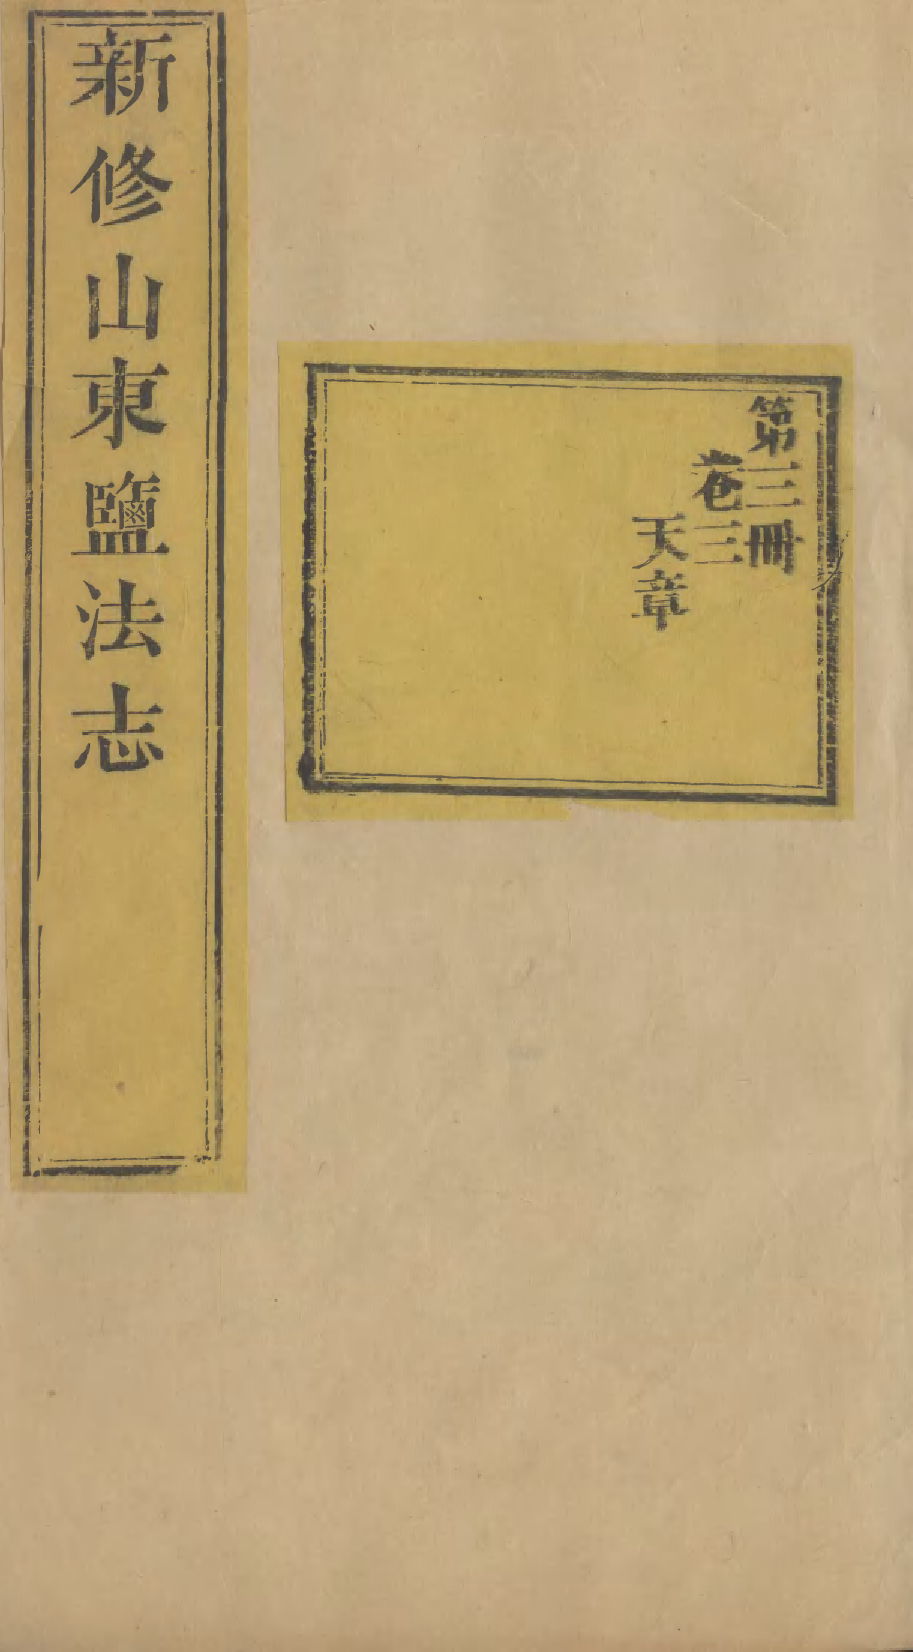 第三冊
卷三
天章
新修山東鹽法志